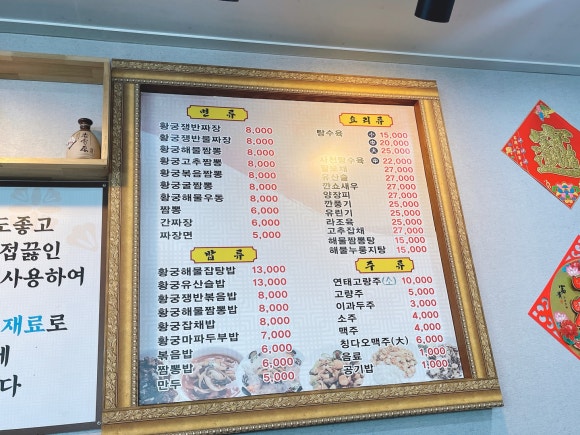 면 류
황궁쟁반짜장 8,000
황궁쟁반물짜장 8,000
황궁해물짬뽕 8,000
황궁고추짬뽕 8,000
황궁볶음짬뽕 8,000
황궁굴짬뽕 8,000
황궁해물우동 8,000
짬뽕 6,000
간짜장 6,000
짜장면 5,000
밥 류
황궁해물잡탕밥 13,000
황궁유산슬밥 13,000
황궁쟁반볶음밥 8,000
황궁해물짬뽕밥 8,000
황궁잡채밥 8,000
황궁마파두부밥 7,000
볶음밥 6,000
짬뽕밥 6,000
만두 5,000
요리류
탕수육 小 15,000
中 20,000
大 25,000
사천탕수육 中 22,000
27,000
유산슬 27,000
깐쇼새우 27,000
양장피 27,000
깐풍기 27,000
유린기 27,000
라조육 27,000
고추잡채 27,000
해물짬뽕탕 15,000
해물누룽지탕 15,000
주 류
연태고량주(소) 10,000
고량주 5,000
이과두주 3,000
소주 4,000
맥주 4,000
칭다오맥주(大) 6,000
음료 1,000
공기밥 1,000
도좋고
접끓인
사용하여
재료로
에
다